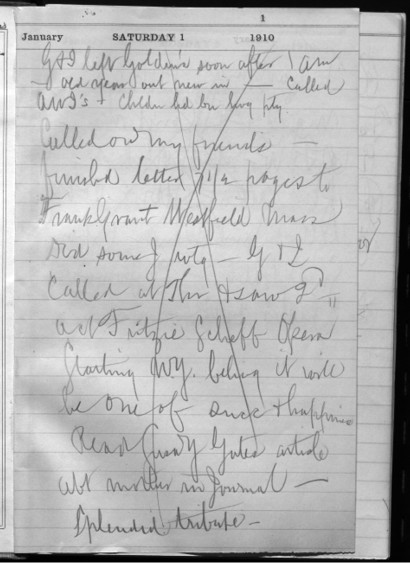 1
January SATURDAY 1 1910
G & I left Golden's soon after 1 am
- old year out new in - Called
AW J's + had
Called on my friends -
finished letter 7 1/2 pages to
Frank Grant Westfield Mass
Did some J - G & I
Called at Thr & saw 2nd
act Fritzie Scheff Opera
Starting N.Y. it will
be one of &
Read Gates article
abt mother in Journal -
Splendid tribute -